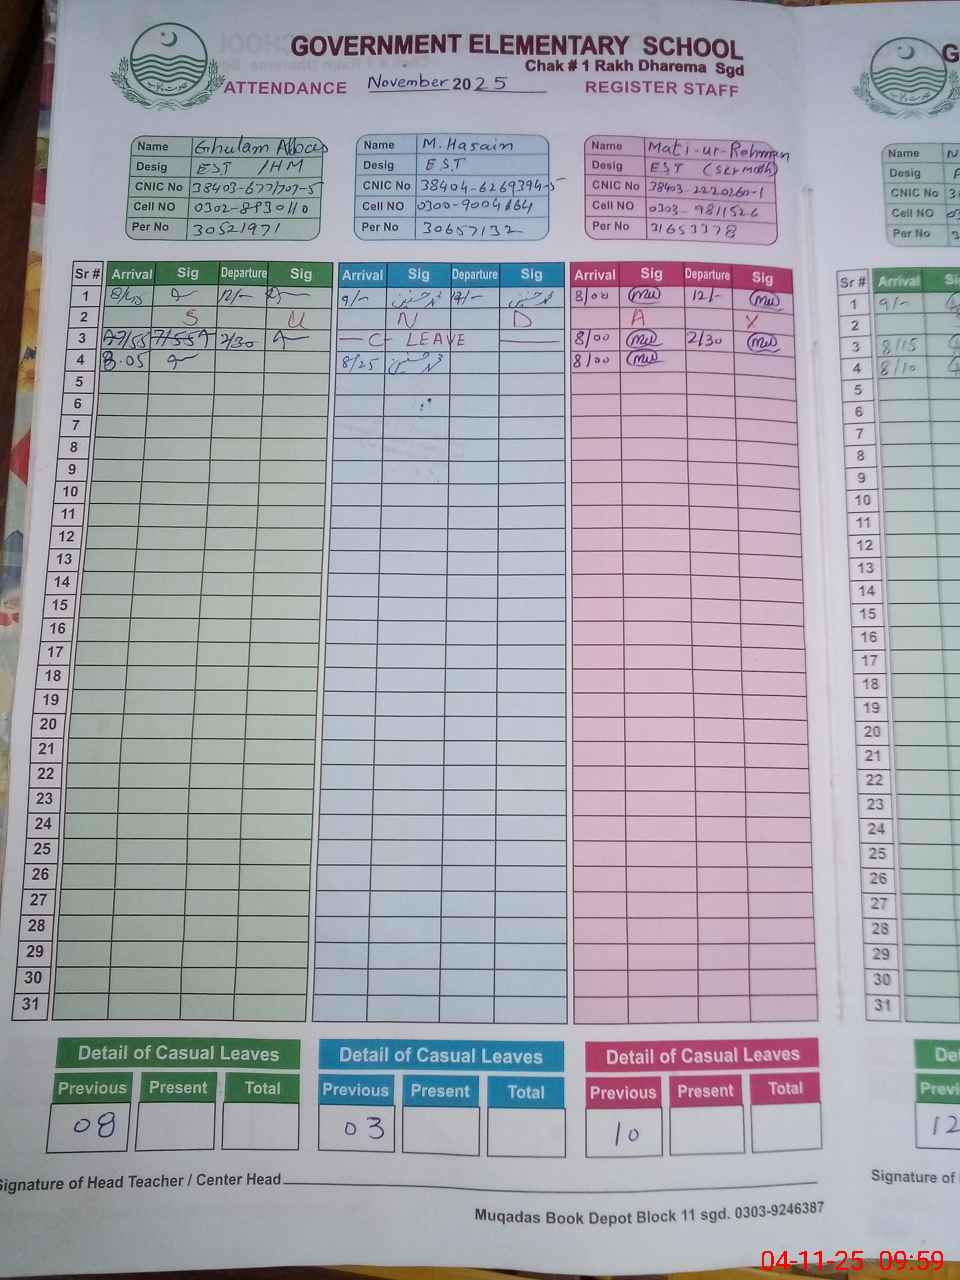 GOVERNMENT ELEMENTARY SCHOOL
Chak # 1 Rakh Dharema Sgd
ATTENDANCE November 2025 REGISTER STAFF
Name Ghulam Abbas
Desig EST /HM
CNIC No
Cell NO
Per No 30521971
Name M. Hasain
Desig EST
CNIC No 38404-6269394-5
Cell NO 0300-9004164
Per No 30657132
Name Mati-ur-Rehman
Desig EST
CNIC No 38403-2220260-1
Cell NO 0303-9811526
Per No 31653378
Name N
Desig
CNIC No 3
Cell NO 03
Per No 3
Sr # Arrival Sig Departure Sig Arrival Sig Departure Sig Arrival Sig Departure Sig Sr # Arrival
1 12/- 9/- محمد حسنین محمد حسنین 8/00 mu 12/- mu 1 9/-
2 S U N D A Y 2
3 7/55 2/30 C- LEAVE 8/00 mu 2/30 mu 3 8/15
4 8.05 8/25 محمد حسنین 8/00 mu 4 8/10
5 5
6 6
7 7
8 8
9 9
10 10
11 11
12 12
13 13
14 14
15 15
16 16
17 17
18 18
19 19
20 20
21 21
22 22
23 23
24 24
25 25
26 26
27 27
28 28
29 29
30 30
31 31
Detail of Casual Leaves Detail of Casual Leaves Detail of Casual Leaves
Previous Present Total Previous Present Total Previous Present Total
08 03 10 12
Signature of Head Teacher / Center Head Signature of
Muqadas Book Depot Block 11 sgd. 0303-9246387
04-11-25 09:59